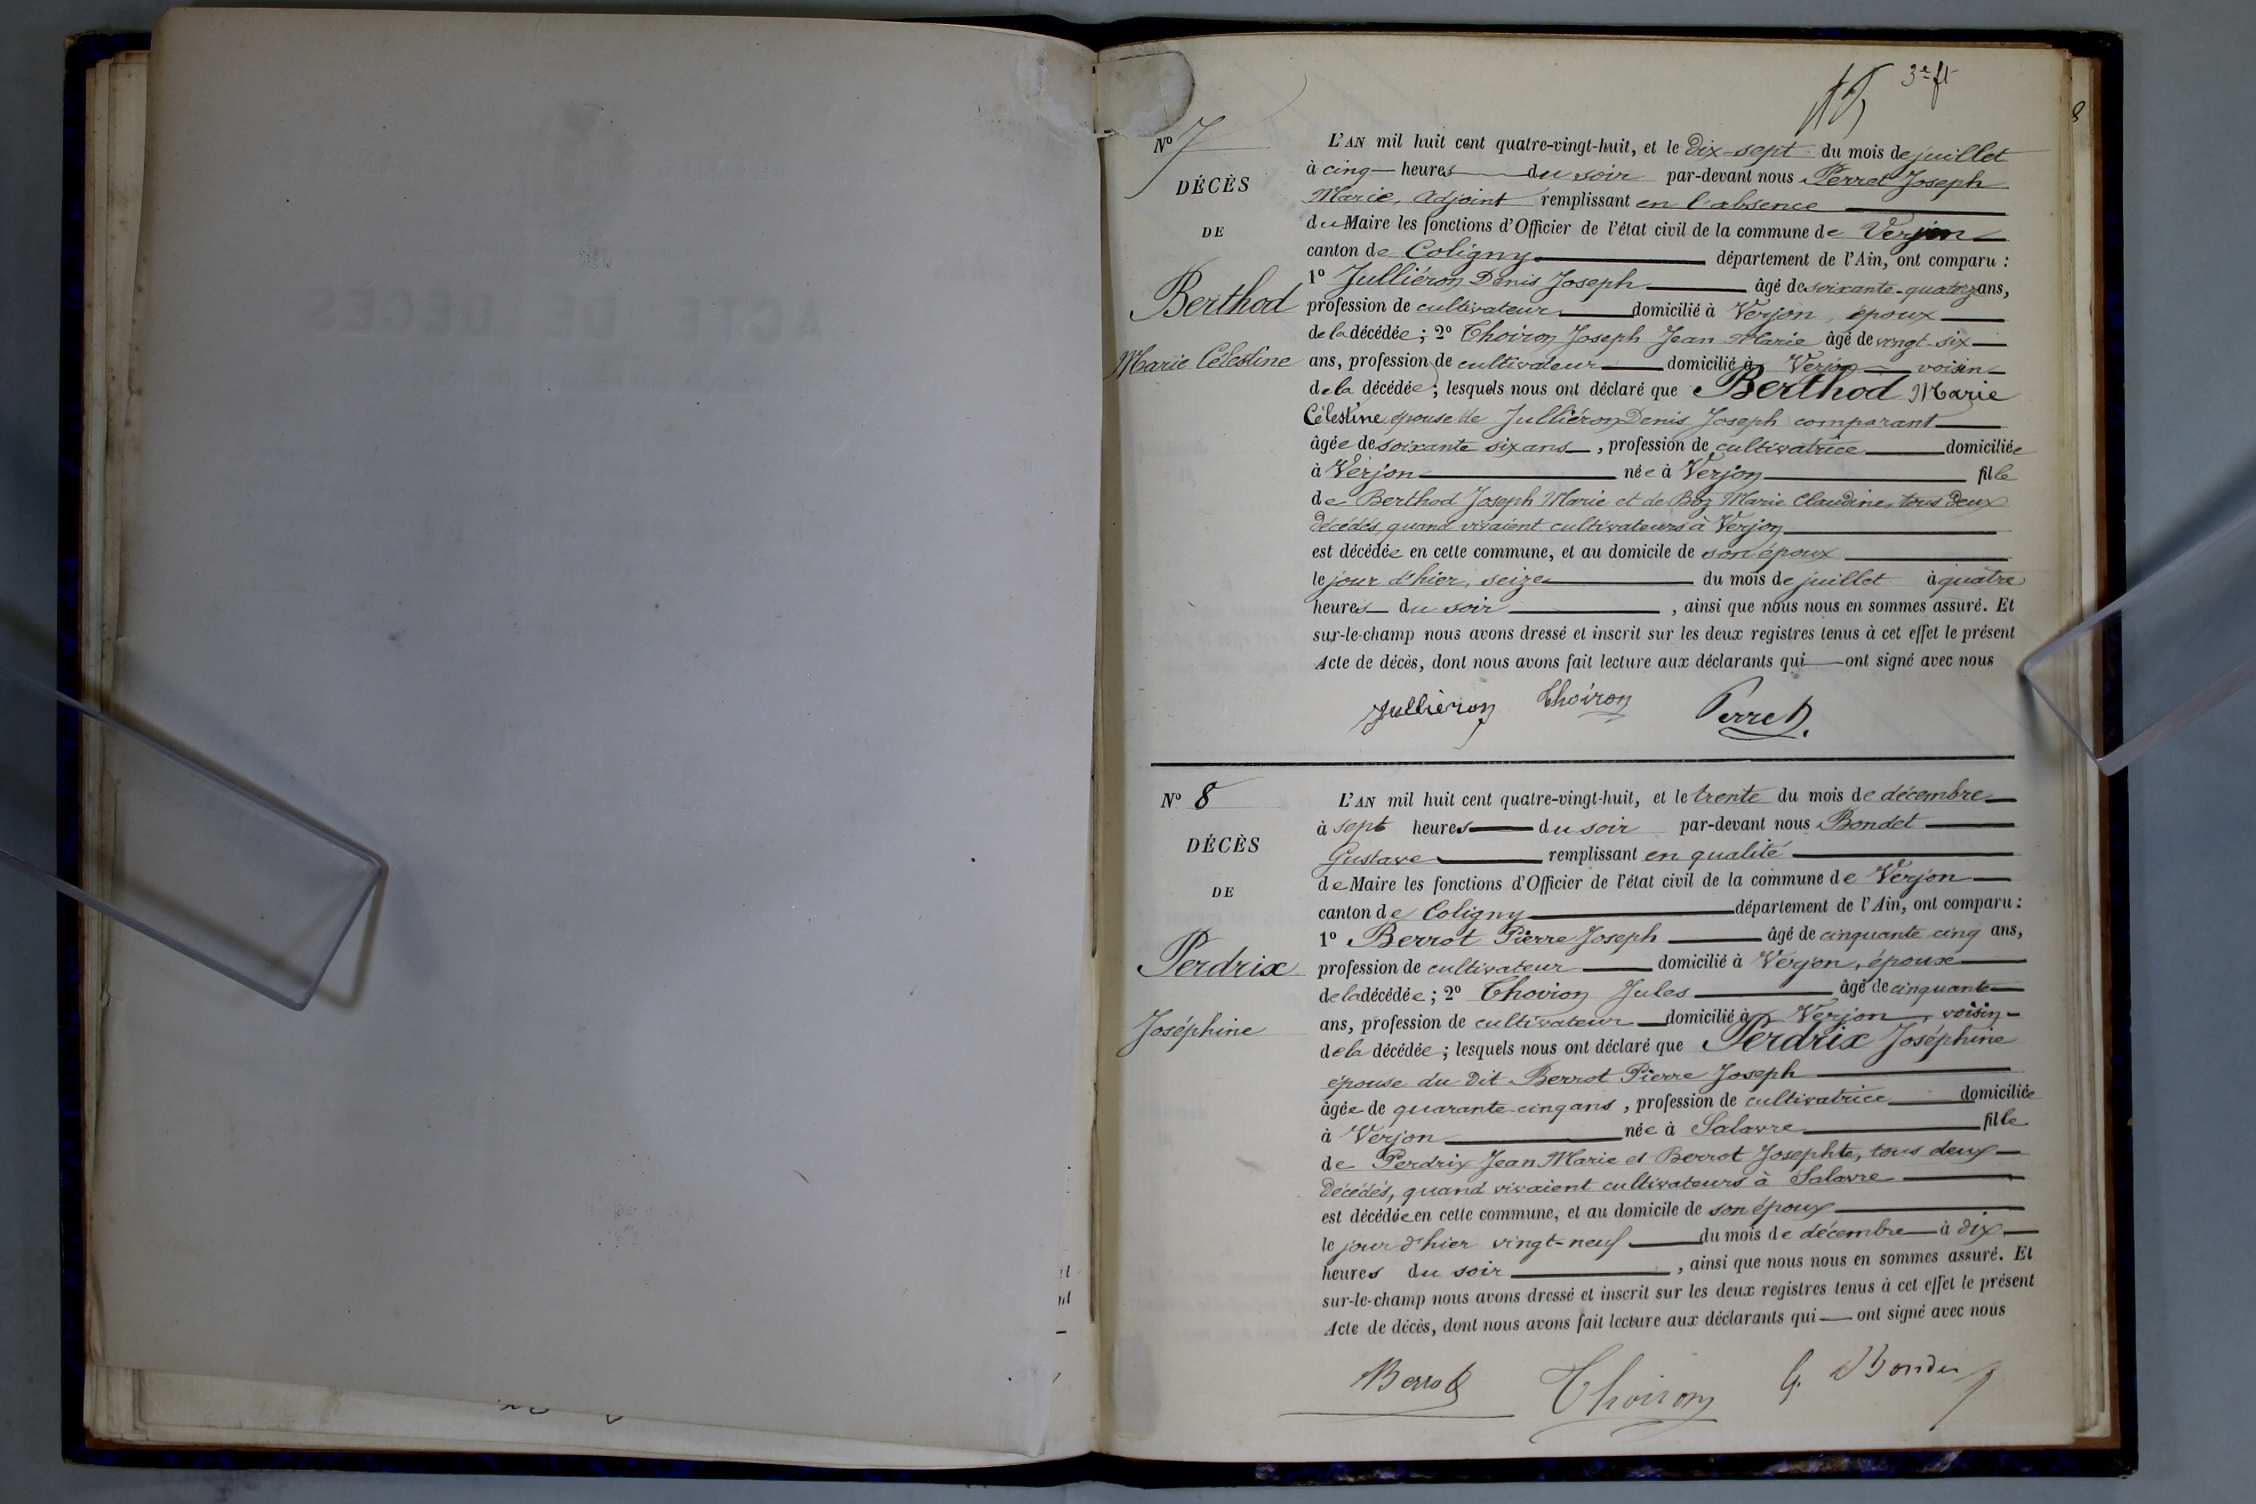 3e ft
N° 7
DÉCÈS
DE
Berthod
Marie Célestine
L'AN mil huit cent quatre-vingt-huit, et le Dix-sept du mois de juillet
à cinq heures du soir par-devant nous Perret Joseph
Marie, Adjoint remplissant en l'absence
du Maire les fonctions d'Officier de l'état civil de la commune de Verjon
canton de Coligny département de l'Ain, ont comparu :
1° Julliéron Denis Joseph âgé de soixante-quatorze ans,
profession de cultivateur domicilié à Verjon, époux
de la décédée ; 2° Thoiron Joseph Jean Marie âgé de vingt-six
ans, profession de cultivateur domicilié à Verjon voisin
de la décédée ; lesquels nous ont déclaré que Berthod Marie
Célestine épouse de Julliéron Denis Joseph comparant
âgée de soixante six ans, profession de cultivatrice domiciliée
à Verjon née à Verjon fille
de Berthod Joseph Marie et de Boz Marie Claudine, tous deux
décédés, quand vivaient cultivateurs à Verjon
est décédée en cette commune, et au domicile de son époux
le jour d'hier, seize du mois de juillet à quatre
heures du soir, ainsi que nous nous en sommes assuré. Et
sur-le-champ nous avons dressé et inscrit sur les deux registres tenus à cet effet le présent
Acte de décès, dont nous avons fait lecture aux déclarants qui ont signé avec nous
Julliéron Thoiron Perret
N° 8
DÉCÈS
DE
Perdrix
Joséphine
L'AN mil huit cent quatre-vingt-huit, et le trente du mois de décembre
à sept heures du soir par-devant nous Bondet
Gustave remplissant en qualité
de Maire les fonctions d'Officier de l'état civil de la commune de Verjon
canton de Coligny département de l'Ain, ont comparu :
1° Berrot Pierre Joseph âgé de cinquante cinq ans,
profession de cultivateur domicilié à Verjon, époux
de la décédée ; 2° Thoviron Jules âgé de cinquante
ans, profession de cultivateur domicilié à Verjon, voisin
de la décédée ; lesquels nous ont déclaré que Perdrix Joséphine
épouse du dit Berrot Pierre Joseph
âgée de quarante-cinq ans, profession de cultivatrice domiciliée
à Verjon née à Salavre fille
de Perdrix Jean Marie et Berrot Josephte, tous deux
décédés, quand vivaient cultivateurs à Salavre
est décédée en cette commune, et au domicile de son époux
le jour d'hier vingt-neuf du mois de décembre à dix
heures du soir, ainsi que nous nous en sommes assuré. Et
sur-le-champ nous avons dressé et inscrit sur les deux registres tenus à cet effet le présent
Acte de décès, dont nous avons fait lecture aux déclarants qui ont signé avec nous
Berrot Thoiron G. Bondet